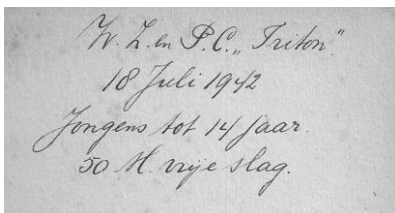 W. Z. en P. C. „Triton."
18 Juli 1942
Jongens tot 14 Jaar.
50 M. vrije slag.